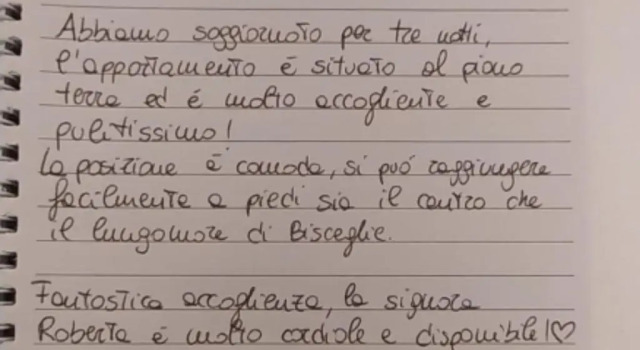 Abbiamo soggiornato per tre notti,
l'appartamento è situato al piano
terra ed è molto accogliente e
pulitissimo!
La posizione è comoda, si può raggiungere
facilmente a piedi sia il centro che
il lungomare di Bisceglie.
Fantastica accoglienza, la signora
Roberta è molto cordiale e disponibile!♡